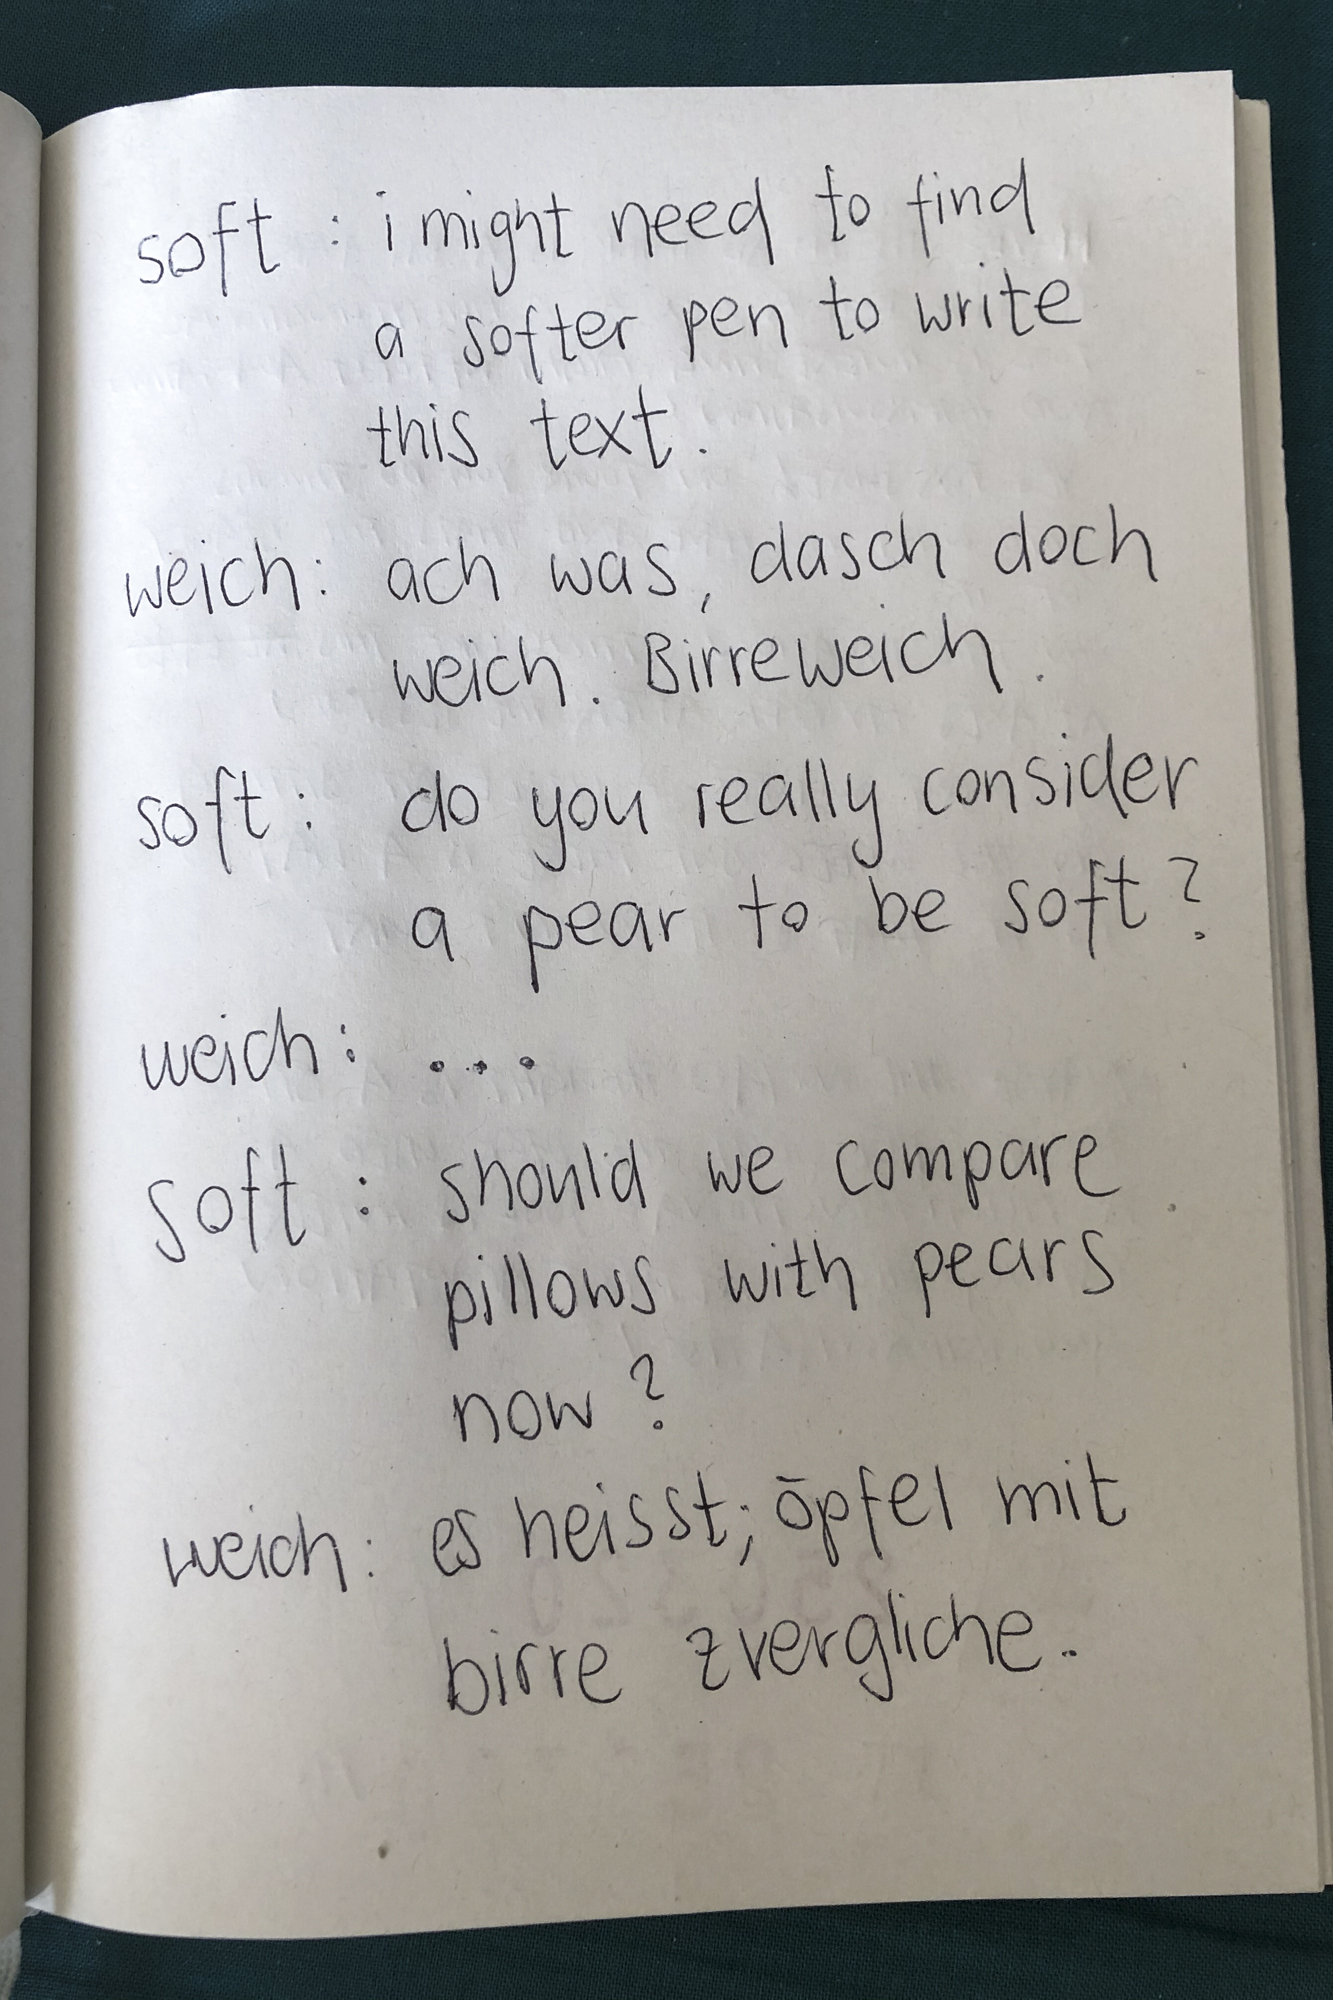 soft : i might need to find
a softer pen to write
this text.
weich: ach was, dasch doch
weich. Birreweich.
soft: do you really consider
a pear to be soft?
weich: ...
soft : should we compare
pillows with pears
now?
weich: es heisst; öpfel mit
birre zvergliche.